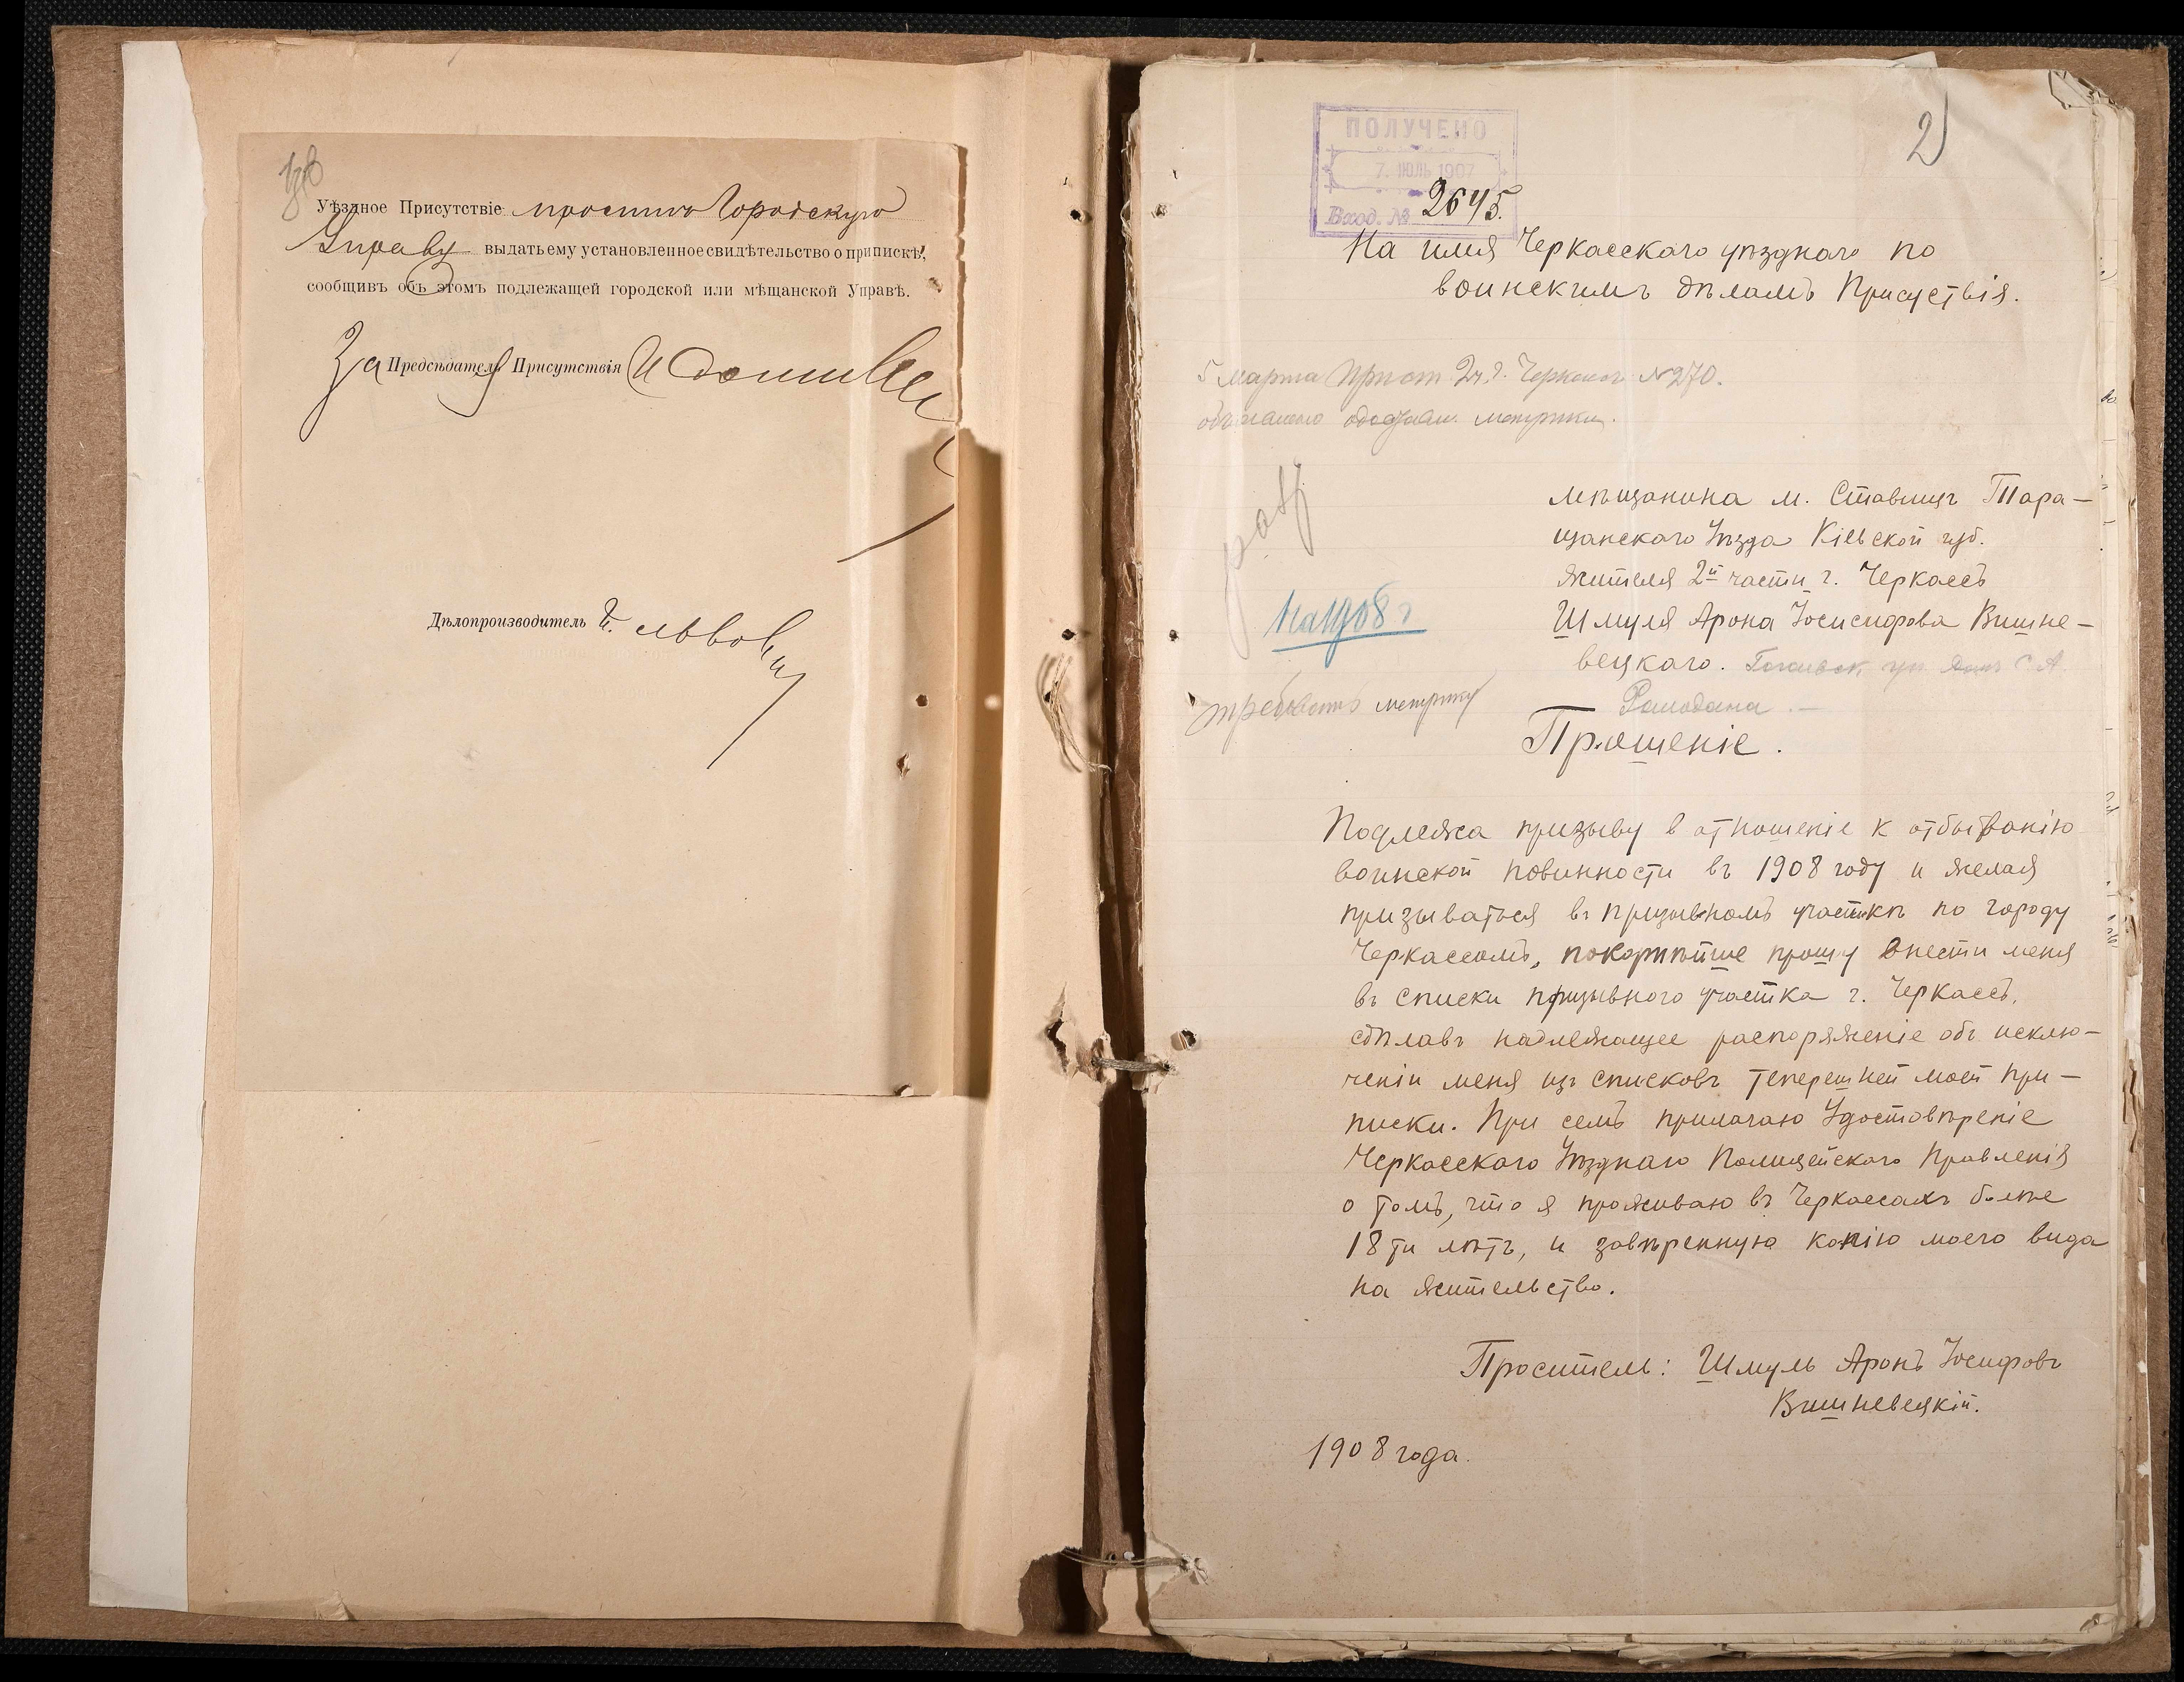 Уѣздное Присутствіе проситъ Городскую
Управу выдать ему установленное свидѣтельство о припискѣ,
сообщивъ объ этомъ подлежащей городской или мѣщанской Управѣ.
За Предсѣдателя Присутствія
Дѣлопроизводитель
2
ПОЛУЧЕНО
7. ІЮЛЬ 1907
Вход. № 2645.
На имя Черкасскаго уѣзднаго по
воинскимъ дѣламъ Присуствія.
5 марта Прист. 2 ч. г. Черкассъ №270.
метрики.
мѣщанина м. Ставищъ Тара-
щанскаго Уѣзда Кіевской губ.
жителя 2й части г. Черкассъ
Шмуля Арона Іосисифова Вишне-
вецкаго.
На 1908 г
требовать метрику
Прошеніе.
Подлежа призыву в отношеніе к отбыванію
воинской повинности въ 1908 году и желая
призываться въ призывномъ участкѣ по городу
Черкассамъ, покорнѣйше прошу внести меня
въ списки призывного участка г. Черкассъ,
сдѣлавъ надлежащее распоряженіе объ исклю-
ченіи меня изъ списковъ теперешней моей при-
писки. При семъ прилагаю Удостовѣреніе
Черкасскаго Уѣзднаго Полицейскаго Правленія
о томъ, что я проживаю въ Черкассахъ болѣе
18 ти лѣтъ, и завѣренную копію моего вида
на жительство.
Проситель: Шмуль Аронъ Іосифовъ
Вишневецкій.
1908 года.